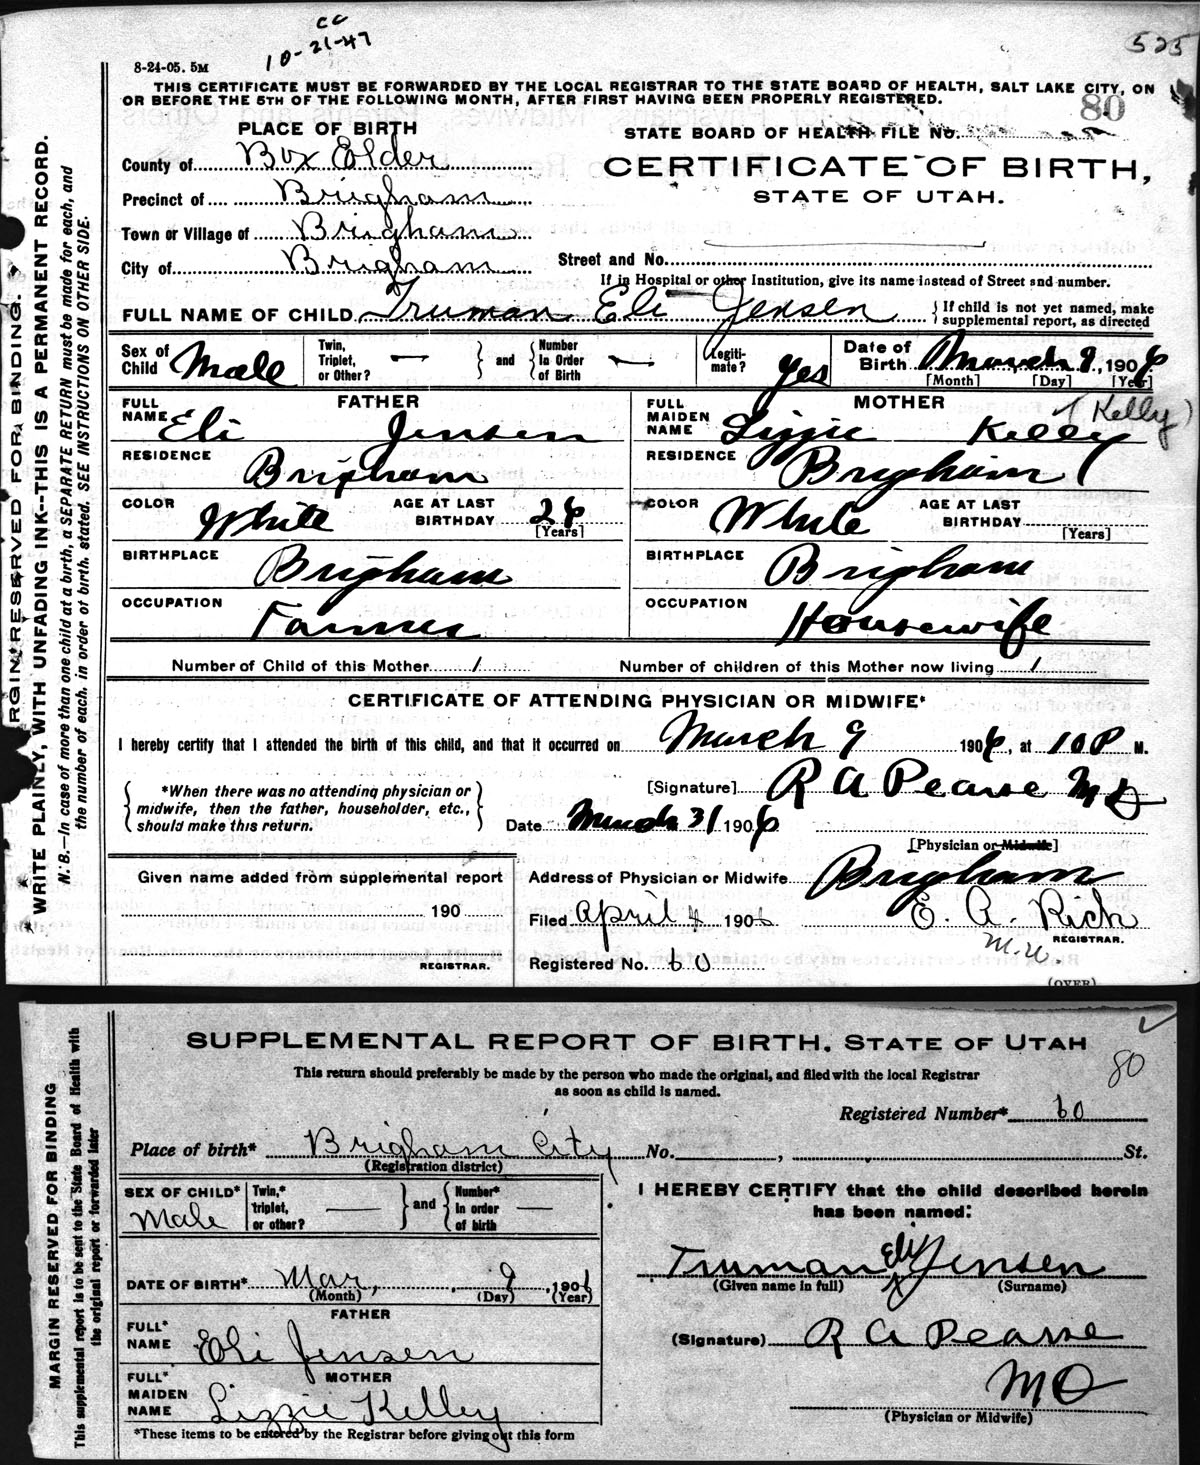 cc
10-21-47
525
8-24-05. 5M
THIS CERTIFICATE MUST BE FORWARDED BY THE LOCAL REGISTRAR TO THE STATE BOARD OF HEALTH, SALT LAKE CITY, ON
OR BEFORE THE 5TH OF THE FOLLOWING MONTH, AFTER FIRST HAVING BEEN PROPERLY REGISTERED.
80
PLACE OF BIRTH
STATE BOARD OF HEALTH FILE No.
County of Box Elder
CERTIFICATE OF BIRTH,
Precinct of Brigham
STATE OF UTAH.
Town or Village of Brigham
City of Brigham
Street and No.
If in Hospital or other Institution, give its name instead of Street and number.
FULL NAME OF CHILD Truman Eli Jensen { If child is not yet named, make supplemental report, as directed
Sex of Child Male Twin, Triplet, or Other? — } and { Number In Order of Birth — Legiti-mate? yes Date of Birth March 9, 1906
[Month] [Day] [Year]
FATHER
FULL NAME Eli Jensen
RESIDENCE Brigham
COLOR White AGE AT LAST BIRTHDAY 26 [Years]
BIRTHPLACE Brigham
OCCUPATION Farmer
MOTHER
(Kelly)
FULL MAIDEN NAME Lizzie Kelly
RESIDENCE Brigham
COLOR White AGE AT LAST BIRTHDAY [Years]
BIRTHPLACE Brigham
OCCUPATION Housewife
Number of Child of this Mother 1 Number of children of this Mother now living 1
CERTIFICATE OF ATTENDING PHYSICIAN OR MIDWIFE*
I hereby certify that I attended the birth of this child, and that it occurred on March 9 1906, at 10 P M.
{ *When there was no attending physician or midwife, then the father, householder, etc., should make this return. }
[Signature] R A Pearse MD
Date March 31 1906
[Physician or Midwife]
Given name added from supplemental report
190
REGISTRAR.
Address of Physician or Midwife Brigham
Filed April 4 1906 E. A. Rich
REGISTRAR.
M.W.
Registered No. 60
(OVER)
MARGIN RESERVED FOR BINDING.
*WRITE PLAINLY, WITH UNFADING INK--THIS IS A PERMANENT RECORD.
N. B.—In case of more than one child at a birth, a SEPARATE RETURN must be made for each, and
the number of each, in order of birth, stated. SEE INSTRUCTIONS ON OTHER SIDE.
SUPPLEMENTAL REPORT OF BIRTH. STATE OF UTAH
80
This return should preferably be made by the person who made the original, and filed with the local Registrar
as soon as child is named.
Registered Number* 60
Place of birth* Brigham City No. , St.
(Registration district)
SEX OF CHILD* Male Twin,* triplet, or other? — } and { Number* in order of birth —
DATE OF BIRTH* Mar, 9, 1906
(Month) (Day) (Year)
FATHER
FULL* NAME Eli Jensen
MOTHER
FULL* MAIDEN NAME Lizzie Kelley
*These items to be entered by the Registrar before giving out this form
I HEREBY CERTIFY that the child described herein
has been named:
Truman Eli Jensen
(Given name in full) (Surname)
(Signature) R A Pearse
MD
(Physician or Midwife)
MARGIN RESERVED FOR BINDING
This supplemental report is to be sent to the State Board of Health with
the original report or forwarded later